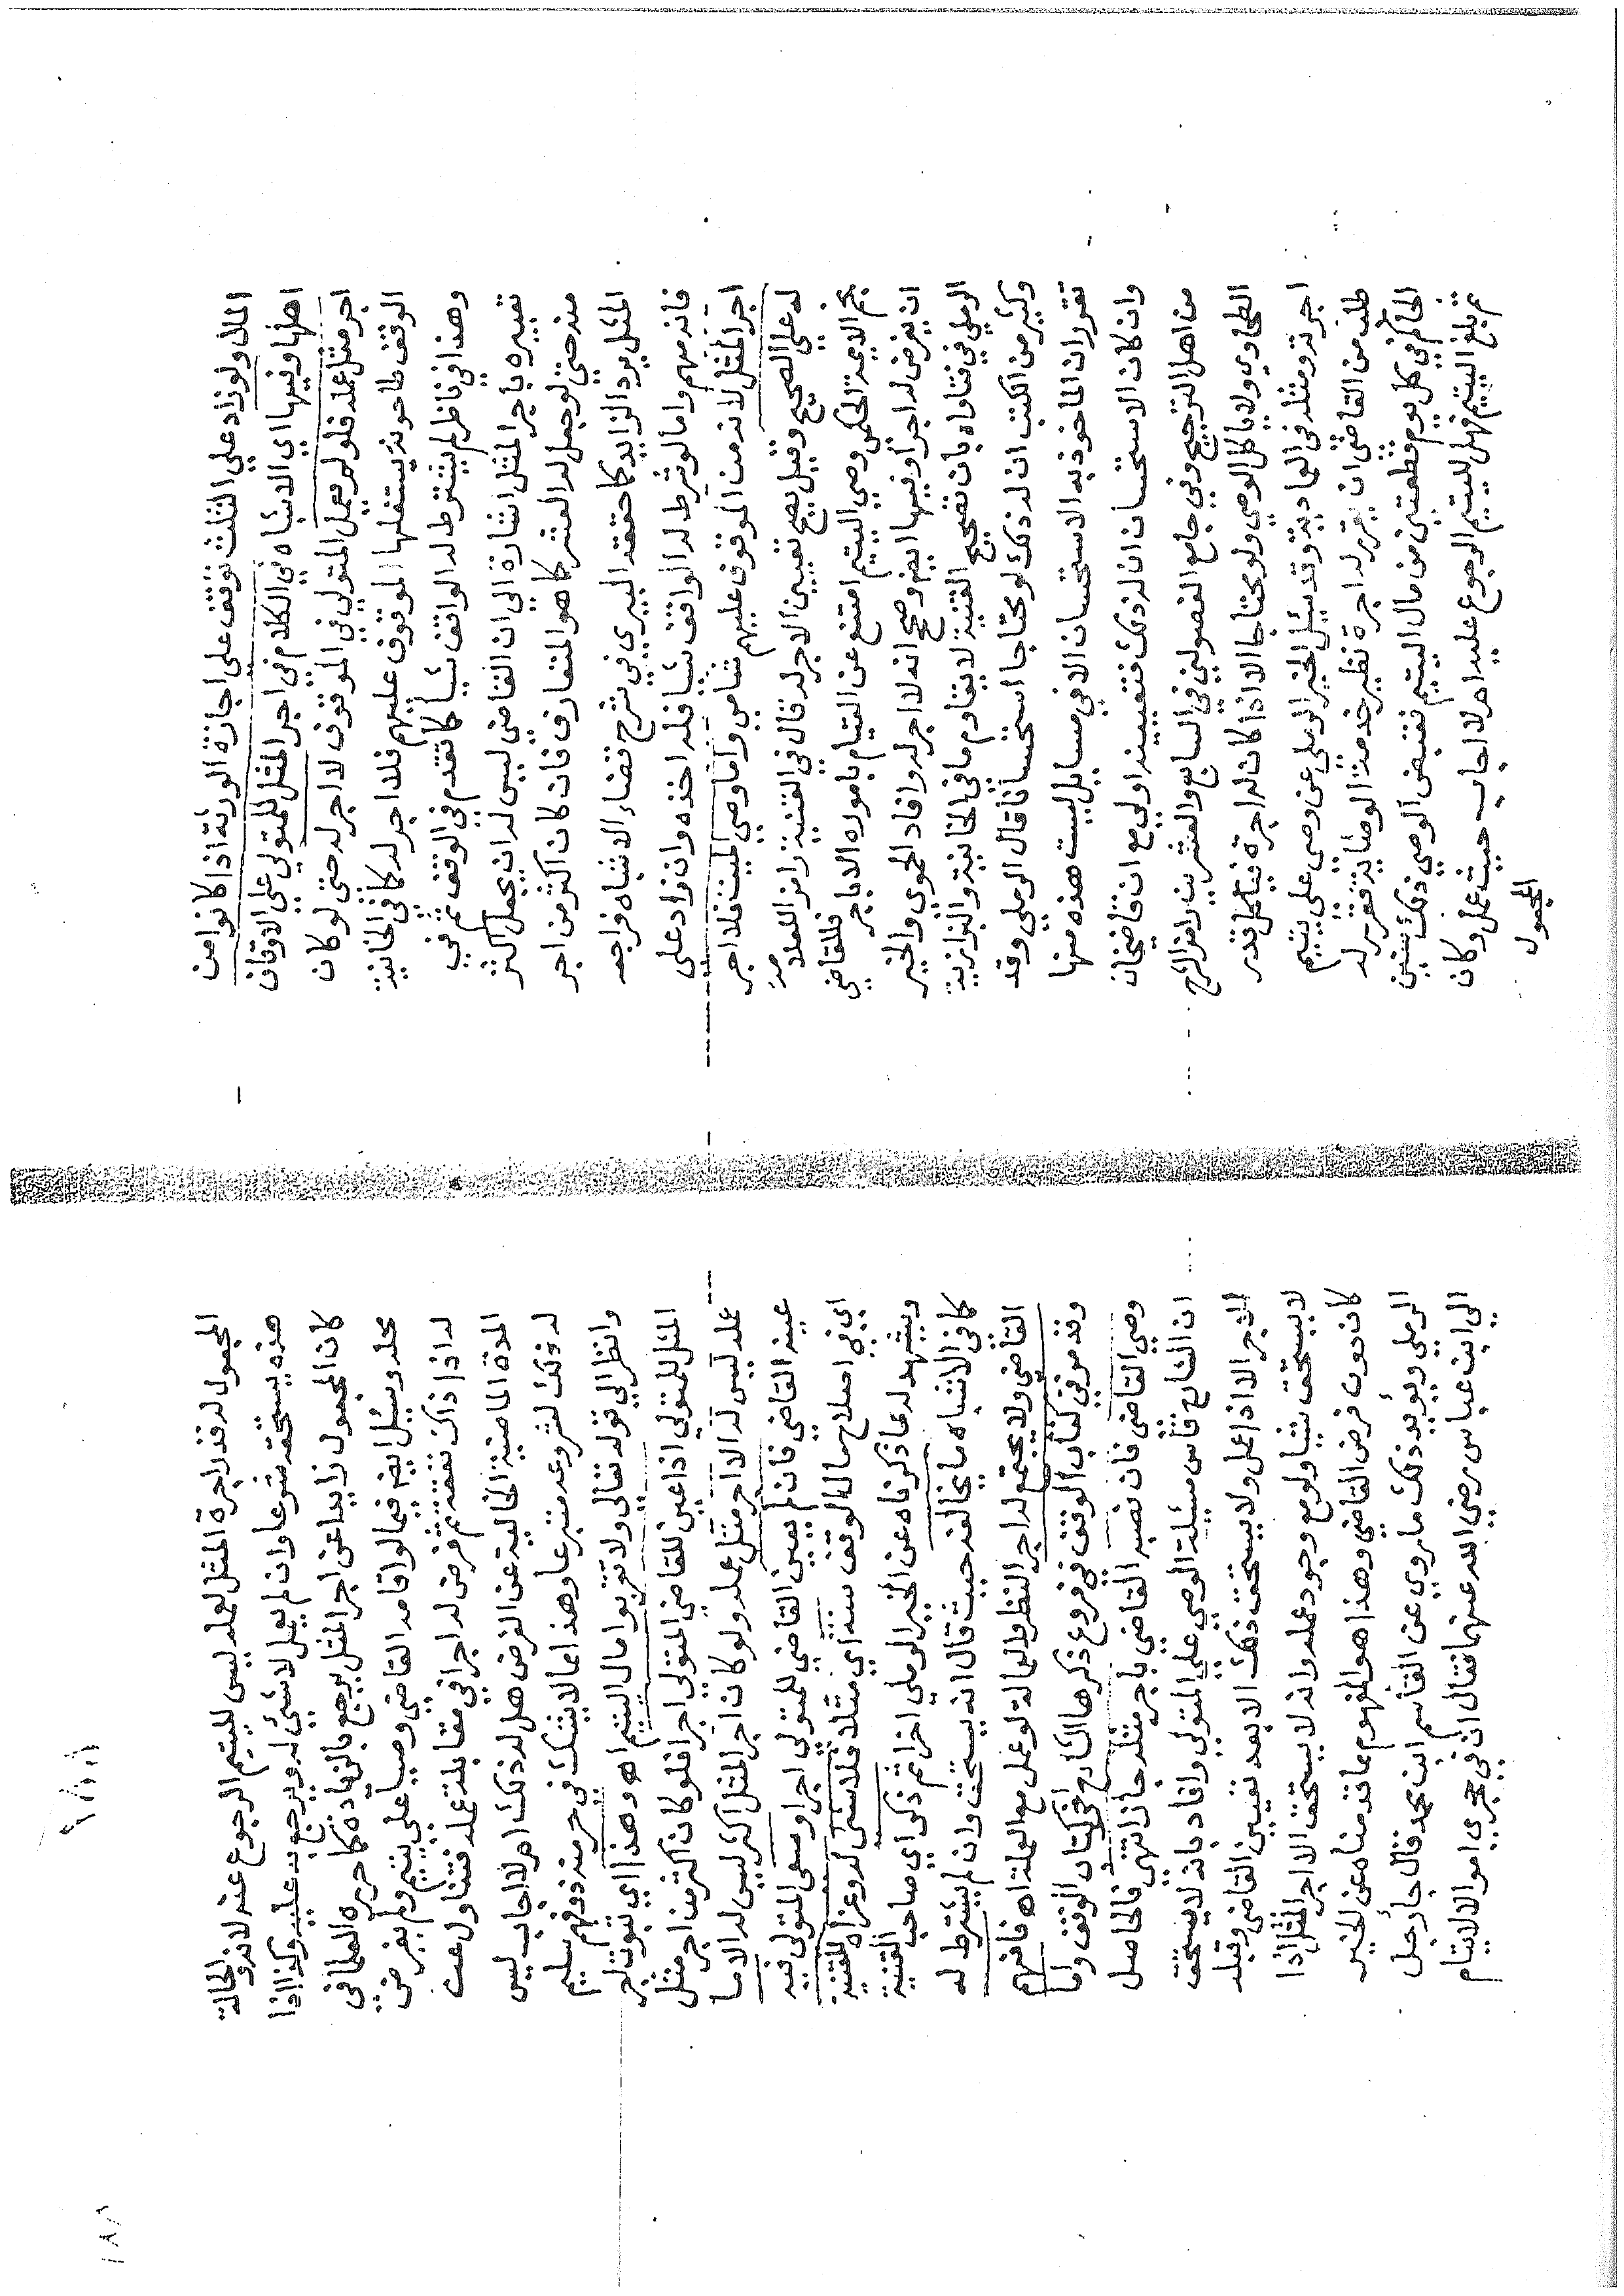 المال ولو زاد علي الثلث توقف علي اجازة الورثة اذا كانوا من
اهلها وفيها اي الاشباه في الكلام في اجر المثل للمتولي علي الاوقاف
اجر مثل عمله فلو لم يعمل المتولي في الموقوف لا اجر له حتي لو كان
الوقف طاحونة يستغلها الموقوف عليهم فلا اجر له كما في الخانية
وهذا في ناظر لم يشترط له الواقف شيا كما تقدم في الوقف ثم في
تعبيره باجر المثل اشارة الي ان القاضي ليس له ان يجعل اكثر
منه حتي لو جعل له العشر كما هو المتعارف فان كان اكثر من اجر
المثل يرد الزايد كما حققه البيري في شرح قضاء الاشباه فراجعه
فانه مهم واما لو شرط له الواقف شيا فله اخذه وان زاد علي
اجر المثل لانه من الموقوف عليهم شامي واما وصي الميت فلا اجر
له علي الصحيح وقيل يصح تعيين الاجر له قال في القنية رامزا للعلامة
نجم الايمة الحكمي وصي اليتيم امتنع عن القيام باموره الا باجر فللقاضي
ان يفرض له اجرا وفيها ايضا وصح انه لا اجر له وافاد الحموي والخير
الرملي في فتاواه بان تصحيح القنية لا يقاوم ما في الخانية والبزازية
وكثير من الكتب ان له ذلك لو محتاجا استحسانا قال الرملي وقد
تقرر ان الماخوذ به الاستحسان الا في مسايل ليست هذه منها
وان كان الاستحسان ان له ذلك فتعيينه اولي مع ان قاضيخان
من اهل الترجيح وفي جامع الفصولين في السابع والعشرين رامزا لشرح
الطحاوي ولا ياكل الوصي ولو محتاجا الا اذا كان له اجرة فياكل قدر
اجرته ومثله في العمادية وقد سئل الخير الرملي عن وصي علي يتيم
طلب من القاضي ان يقرر له اجرة نظير خدمته الوصاية فقرر له
الحاكم في كل يوم قطعتين من مال اليتيم فقبض الوصي ذلك سنتين
ثم بلغ اليتيم فهل لليتيم الرجوع عليه ام لا اجاب حيث عمل وكان
المجعول
المجعول له قدر اجرة المثل لعمله ليس لليتيم الرجوع عنه لانه والحالة
هذه يستحقه شرعا وان لم يعمل لا شي له ويرجع به عليه وكذا اذا
كان المجعول زايدا عن اجر المثل يرجع بالزيادة كما حرره العلما في
محله وسئل ايضا فيما لو اقامه القاضي وصيا علي يتيم ولم يفرض
له اذا ذاك نفقة ثم فرض له اجرا في مقابلة عمله فتناول عن
المدة الماضية الخالية عن الفرض هل له ذلك ام لا اجاب ليس
له ذلك لشروعه متبرعا وهذا مما لا يشك في حرمته ذو فهم سليم
وانظر الي قوله تعالي ولا تقربوا مال اليتيم اه وهذا اي ثبوت اجر
المثل للمتولي اذا عين للقاضي المتولي اجرا فلو كان اكثر من اجر مثل
عمله ليس له الا اجر مثل عمله ولو كان اجر المثل اكثر ليس له الا ما
عينه القاضي فان لم يعين القاضي للمتولي اجرا وسعي المتولي فيه
اي في اصلاح مال الوقف سنة اي مثلا فلا شي له وعزاه للقنية
ويشهد له ما ذكرناه عن الخير الرملي اخرا ثم ذكر اي صاحب القنية
كما في الاشباه ما يخالفه حيث قال انه يستحق وان لم يشترط له
القاضي ولا يجتمع له اجر النظر والعمالة لو عمل مع العملة اه فافهم
وقد مر في كتاب الوقف في فروع ذكرها الشارح اخر كتاب الوقف واما
وصي القاضي فان نصبه القاضي باجر مثله جاز انتهي فالحاصل
ان الشارح قاس مسيلة الوصي علي المتولي وافاد بانه لا يستحق
الاجر الا اذا عمل ولا يستحق ذلك الا بعد تعيين القاضي وقبله
لا يستحق شيا ولو مع وجود عمله وانه لا يستحق الا اجر المثل اذا
كان دون فرض القاضي وهذا هو المفهوم مما قدمنا عن الخير
الرملي ويؤيد ذلك ما روي عن القاسم ابن محمد قال جا رجل
الي ابن عباس رضي الله عنهما فقال ان في حجري اموال الايتام
١٨٨